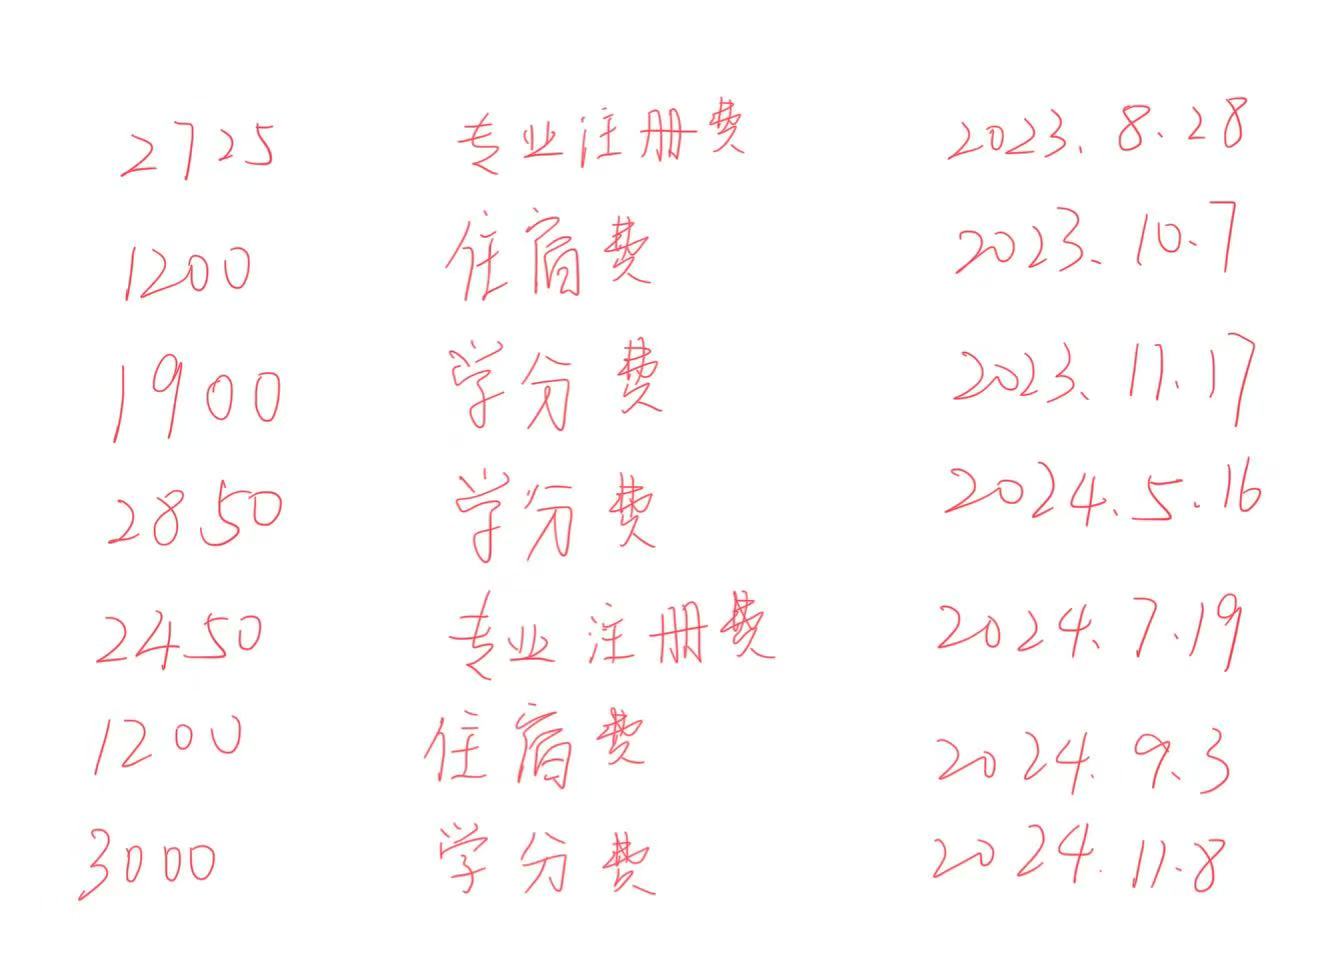 2725 专业注册费 2023.8.28
1200 住宿费 2023.10.7
1900 学分费 2023.11.17
2850 学分费 2024.5.16
2450 专业注册费 2024.7.19
1200 住宿费 2024.9.3
3000 学分费 2024.11.8